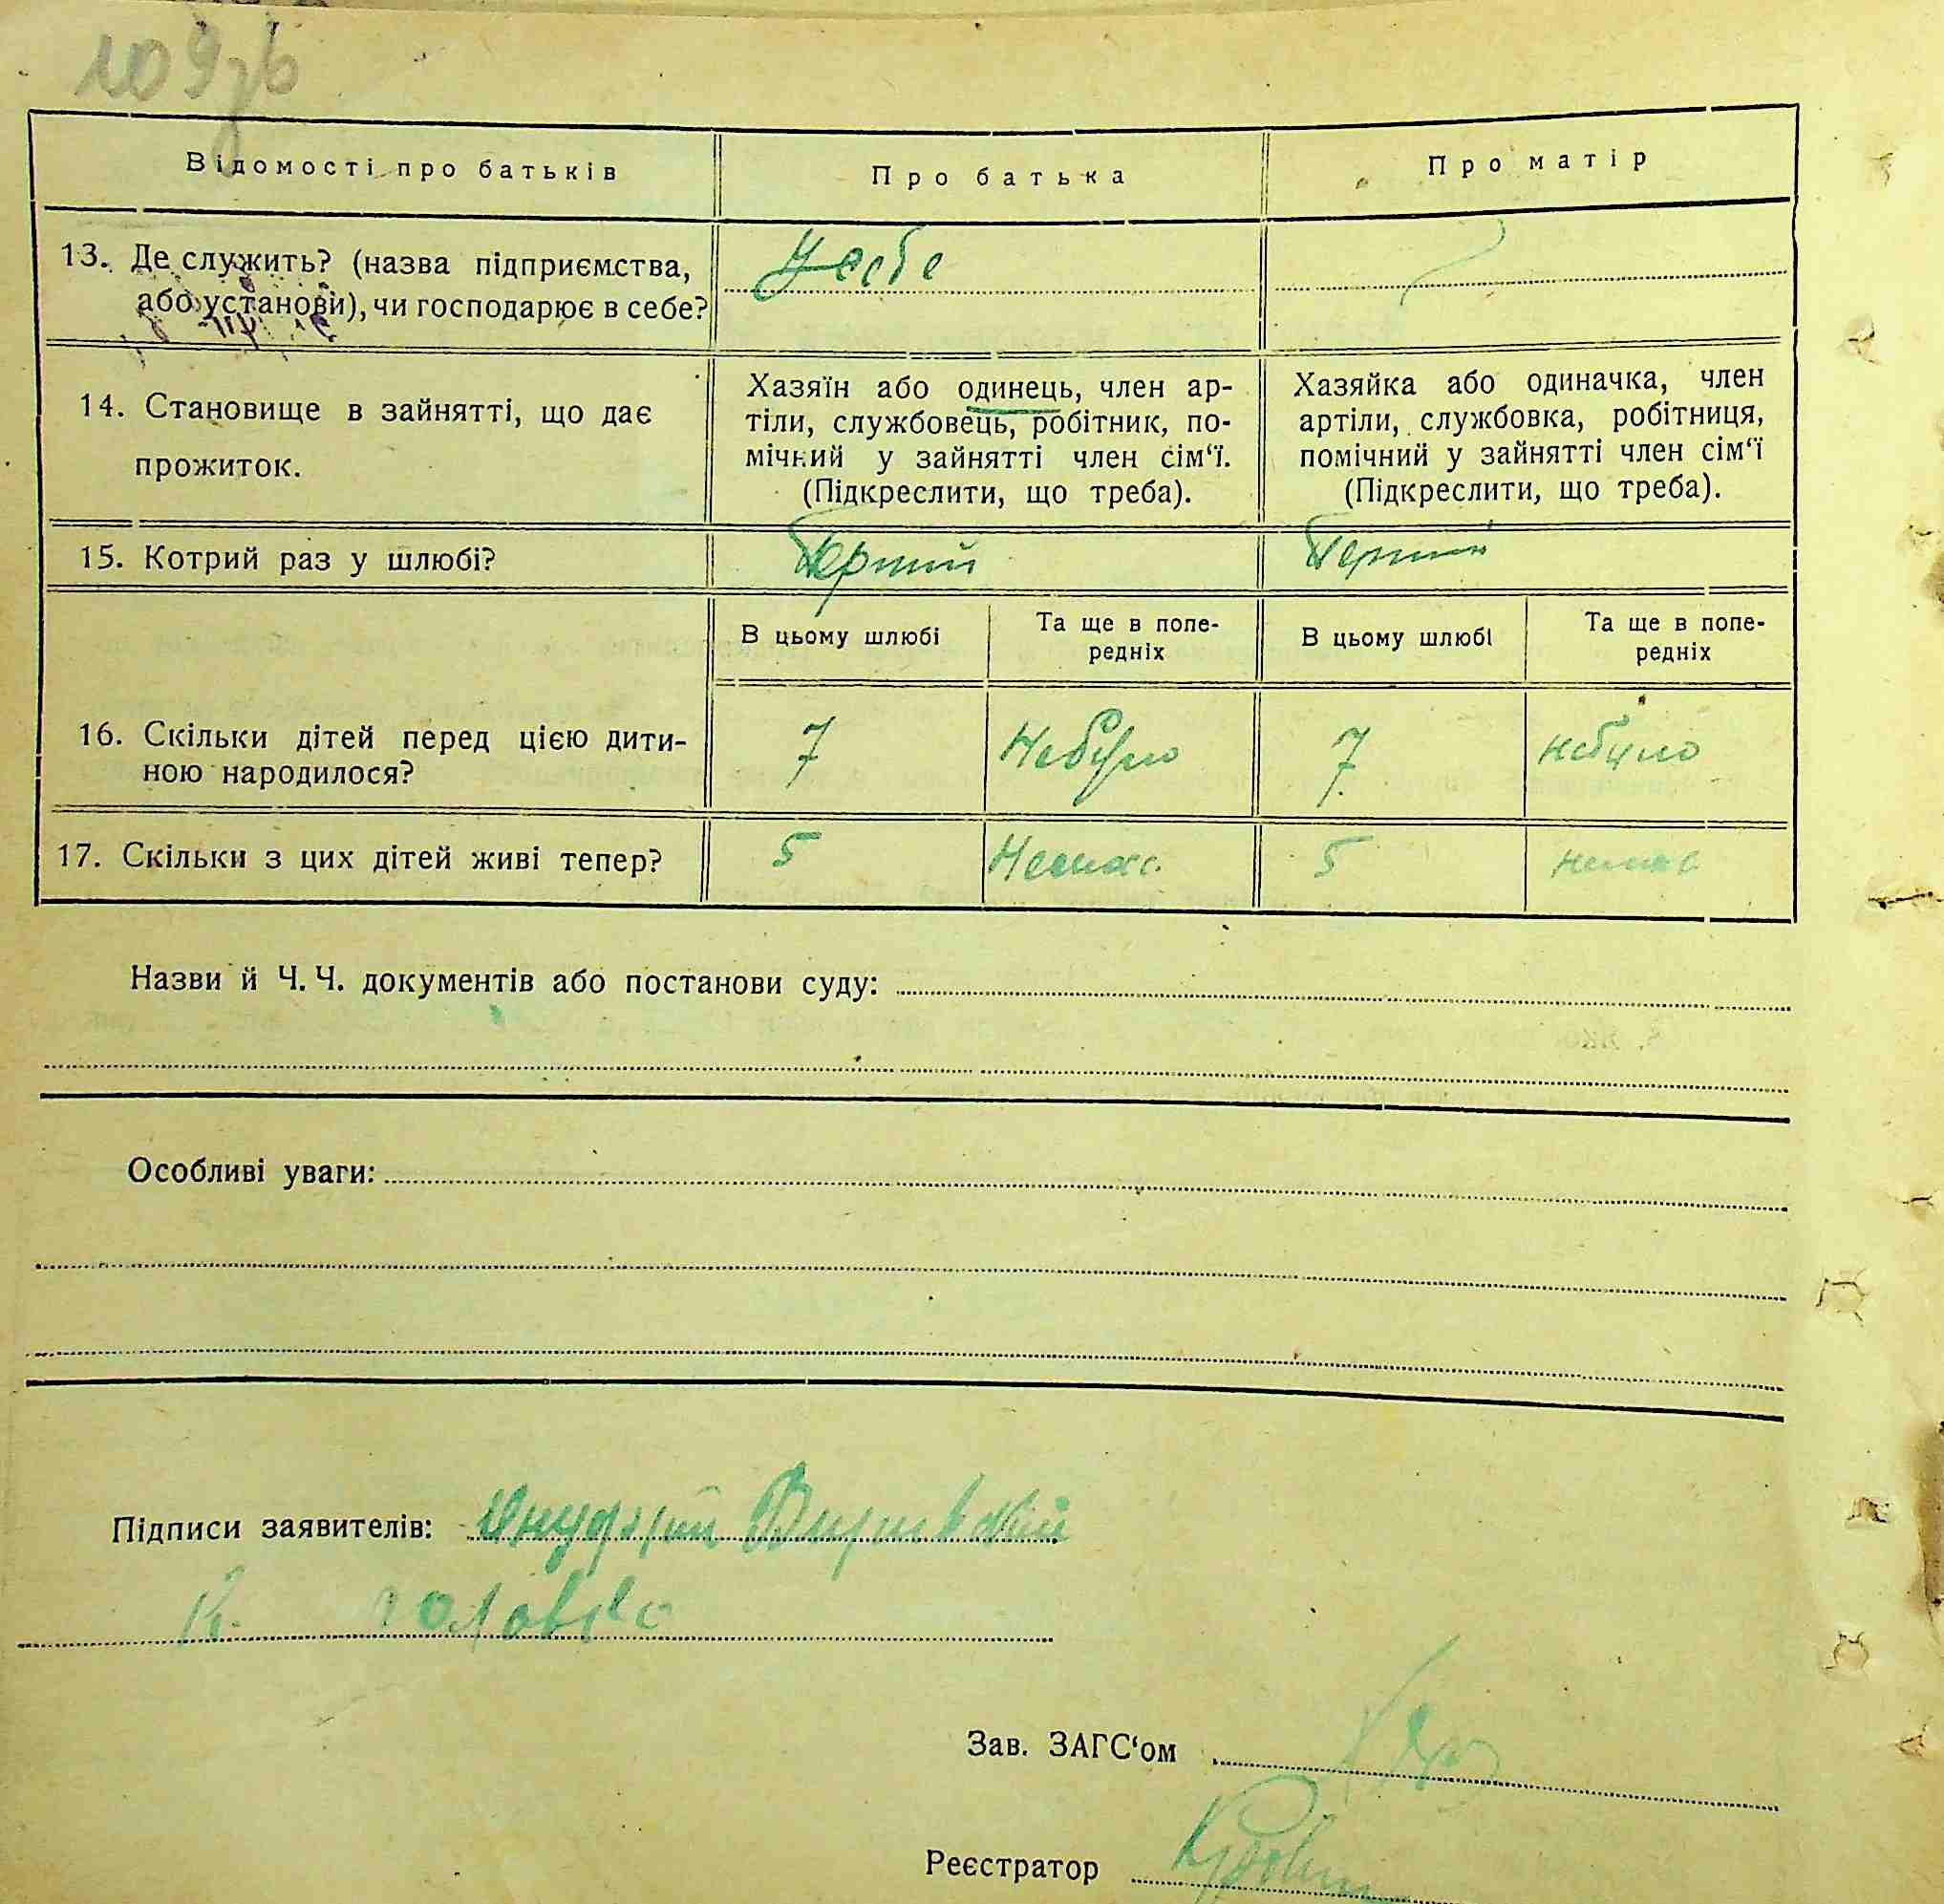 109зв
Відомості про батьків
Про батька
Про матір
13. Де служить? (назва підприємства,
або установи), чи господарює в себе?
У себе
14. Становище в зайнятті, що дає
прожиток.
Хазяїн або одинець, член ар-
тіли, службовець, робітник, по-
мічний у зайнятті член сім‘ї.
(Підкреслити, що треба).
Хазяйка або одиначка, член
артіли, службовка, робітниця,
помічний у зайнятті член сім‘ї
(Підкреслити, що треба).
15. Котрий раз у шлюбі?
Перший
Перший
В цьому шлюбі
Та ще в попе-
редніх
В цьому шлюбі
Та ще в попе-
редніх
16. Скільки дітей перед цією дити-
ною народилося?
7
Небуло
7
небуло
17. Скільки з цих дітей живі тепер?
5
Немає
5
немає
Назви й Ч. Ч. документів або постанови суду:
Особливі уваги:
Підписи заявителів:
Зав. ЗАГС‘ом
Реєстратор